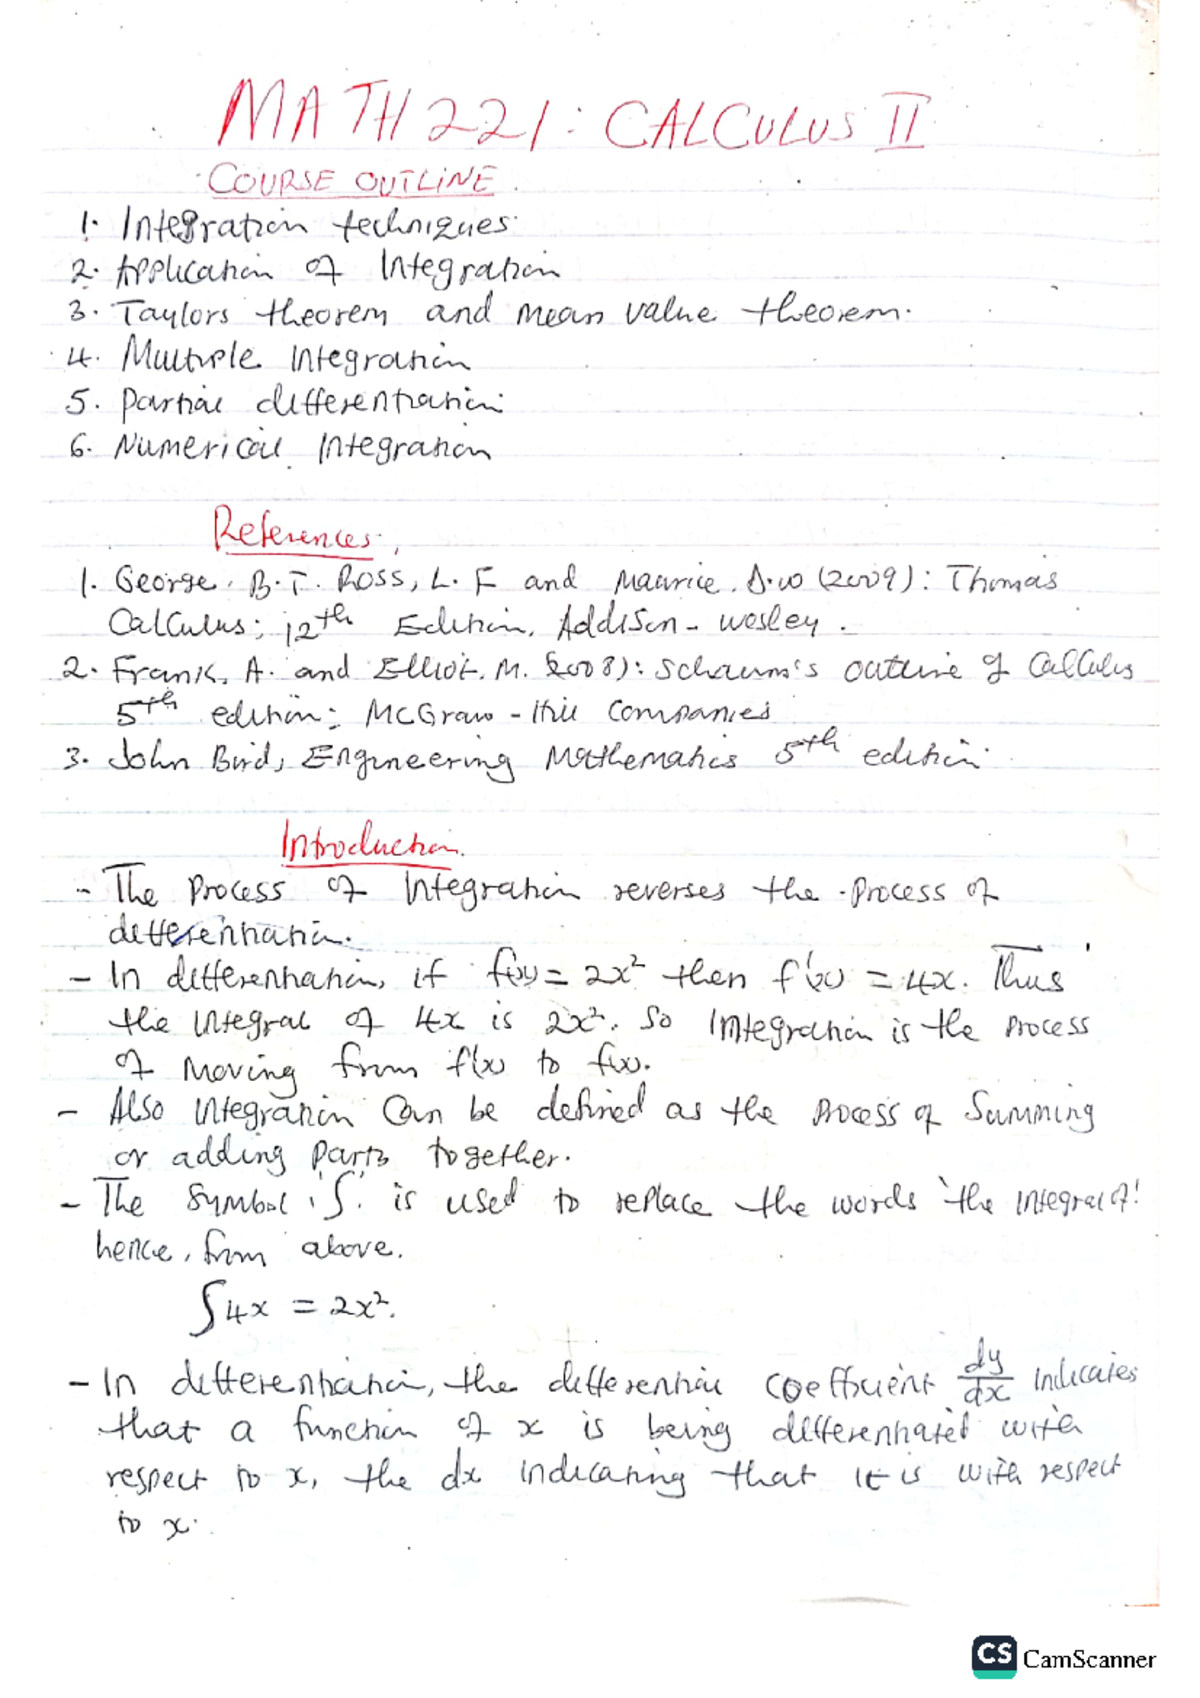 MATH 221: CALCULUS II
COURSE OUTLINE.
1. Integration techniques.
2. Application of Integration
3. Taylors theorem and mean value theorem.
4. Multiple Integration
5. Partial differentiation.
6. Numerical Integration
References.
1. George. B.T. Ross, L. F and Maurice. D.W (2009): Thomas
Calculus; 12th Edition, Addison-wesley.
2. Frank, A. and Elliot. M. (2008): Schaum's outline of Calculus
5th edition; McGraw-Hill Companies
3. John Bird, Engineering Mathematics 5th edition.
Introduction.
- The process of Integration reverses the process of
differentiation.
- In differentiation, if f(x) = 2x² then f'(x) = 4x. Thus
the integral of 4x is 2x². So Integration is the process
of moving from f'(x) to f(x).
- Also Integration can be defined as the process of Summing
or adding parts together.
- The symbol '∫' is used to replace the words 'the integral of'
hence, from above.
∫4x = 2x².
- In differentiation, the differential coefficient dy/dx indicates
that a function of x is being differentiated with
respect to x, the dx indicating that it is with respect
to x.
CS CamScanner